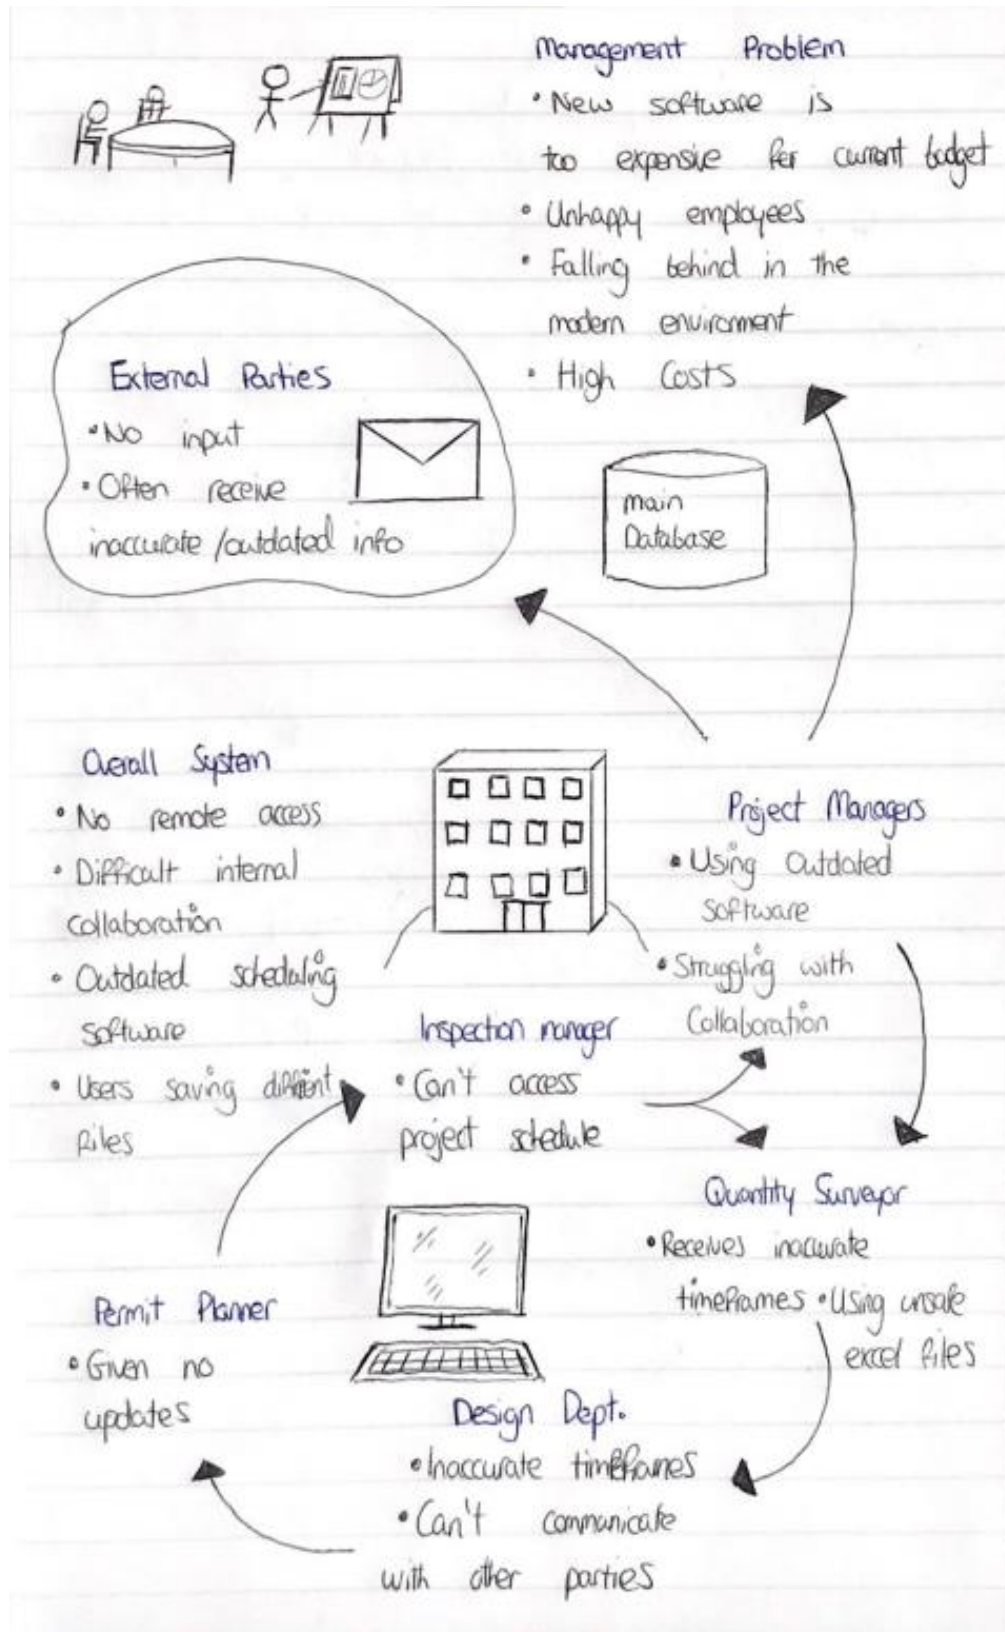 Management Problem
• New software is
too expensive for current budget
• Unhappy employees
• Falling behind in the
modern environment
• High Costs
External Parties
• No input
• Often receive
inaccurate /outdated info
main
Database
Overall System
• No remote access
• Difficult internal
collaboration
• Outdated scheduling
software
• Users saving different
files
Project Managers
• Using Outdated
software
• Struggling with
Collaboration
Inspection manager
• Can't access
project schedule
Quantity Surveyor
• Receives inaccurate
timeframes • Using unsafe
excel files
Permit Planner
• Given no
updates
Design Dept.
• Inaccurate timeframes
• Can't communicate
with other parties